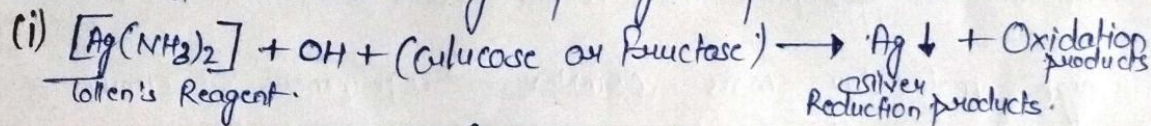 (i) [Ag(NH3)2] + OH + (Gulucose or Fructose) → Ag ↓ + Oxidation products
Tollen's Reagent. Silver
Reduction products.